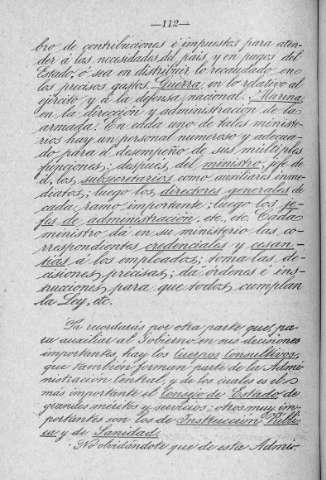 —112—
bro de contribuciones é impuestos para aten-
der á las necesidades del país, y en pagos del
Estado; ó sea en distribuir lo recaudado en
los precisos gastos. Guerra, en lo relativo al
ejército y á la defensa nacional. Marina,
en la dirección y administración de la
armada. En cada uno de tales ministe-
rios hay un personal numeroso y adecua-
do para el desempeño de sus múltiples
funciones; después, del ministro, jefe de
él, los subsecretarios como auxiliares inme-
diatos; luego los directores generales de
cada ramo importante; luego los je-
fes de administración, etc. etc. Cada
ministro dá en su ministerio las co-
rrespondientes credenciales y cesan-
tías á los empleados; toma las de-
cisiones precisas; da órdenes é ins-
trucciones para que todos cumplan
la Ley, etc.
Ya recordarás por otra parte que, pa-
ra auxiliar al Gobierno en sus decisiones
importantes, hay los Cuerpos Consultivos,
que también forman parte de la Admi-
nistración Central, y de los cuales es el
más importante el Consejo de Estado, de
grandes méritos y servicios; otros muy im-
portantes son los de Instrucción Públi-
ca y de Sanidad.
No olvidándote que de esta Admi-